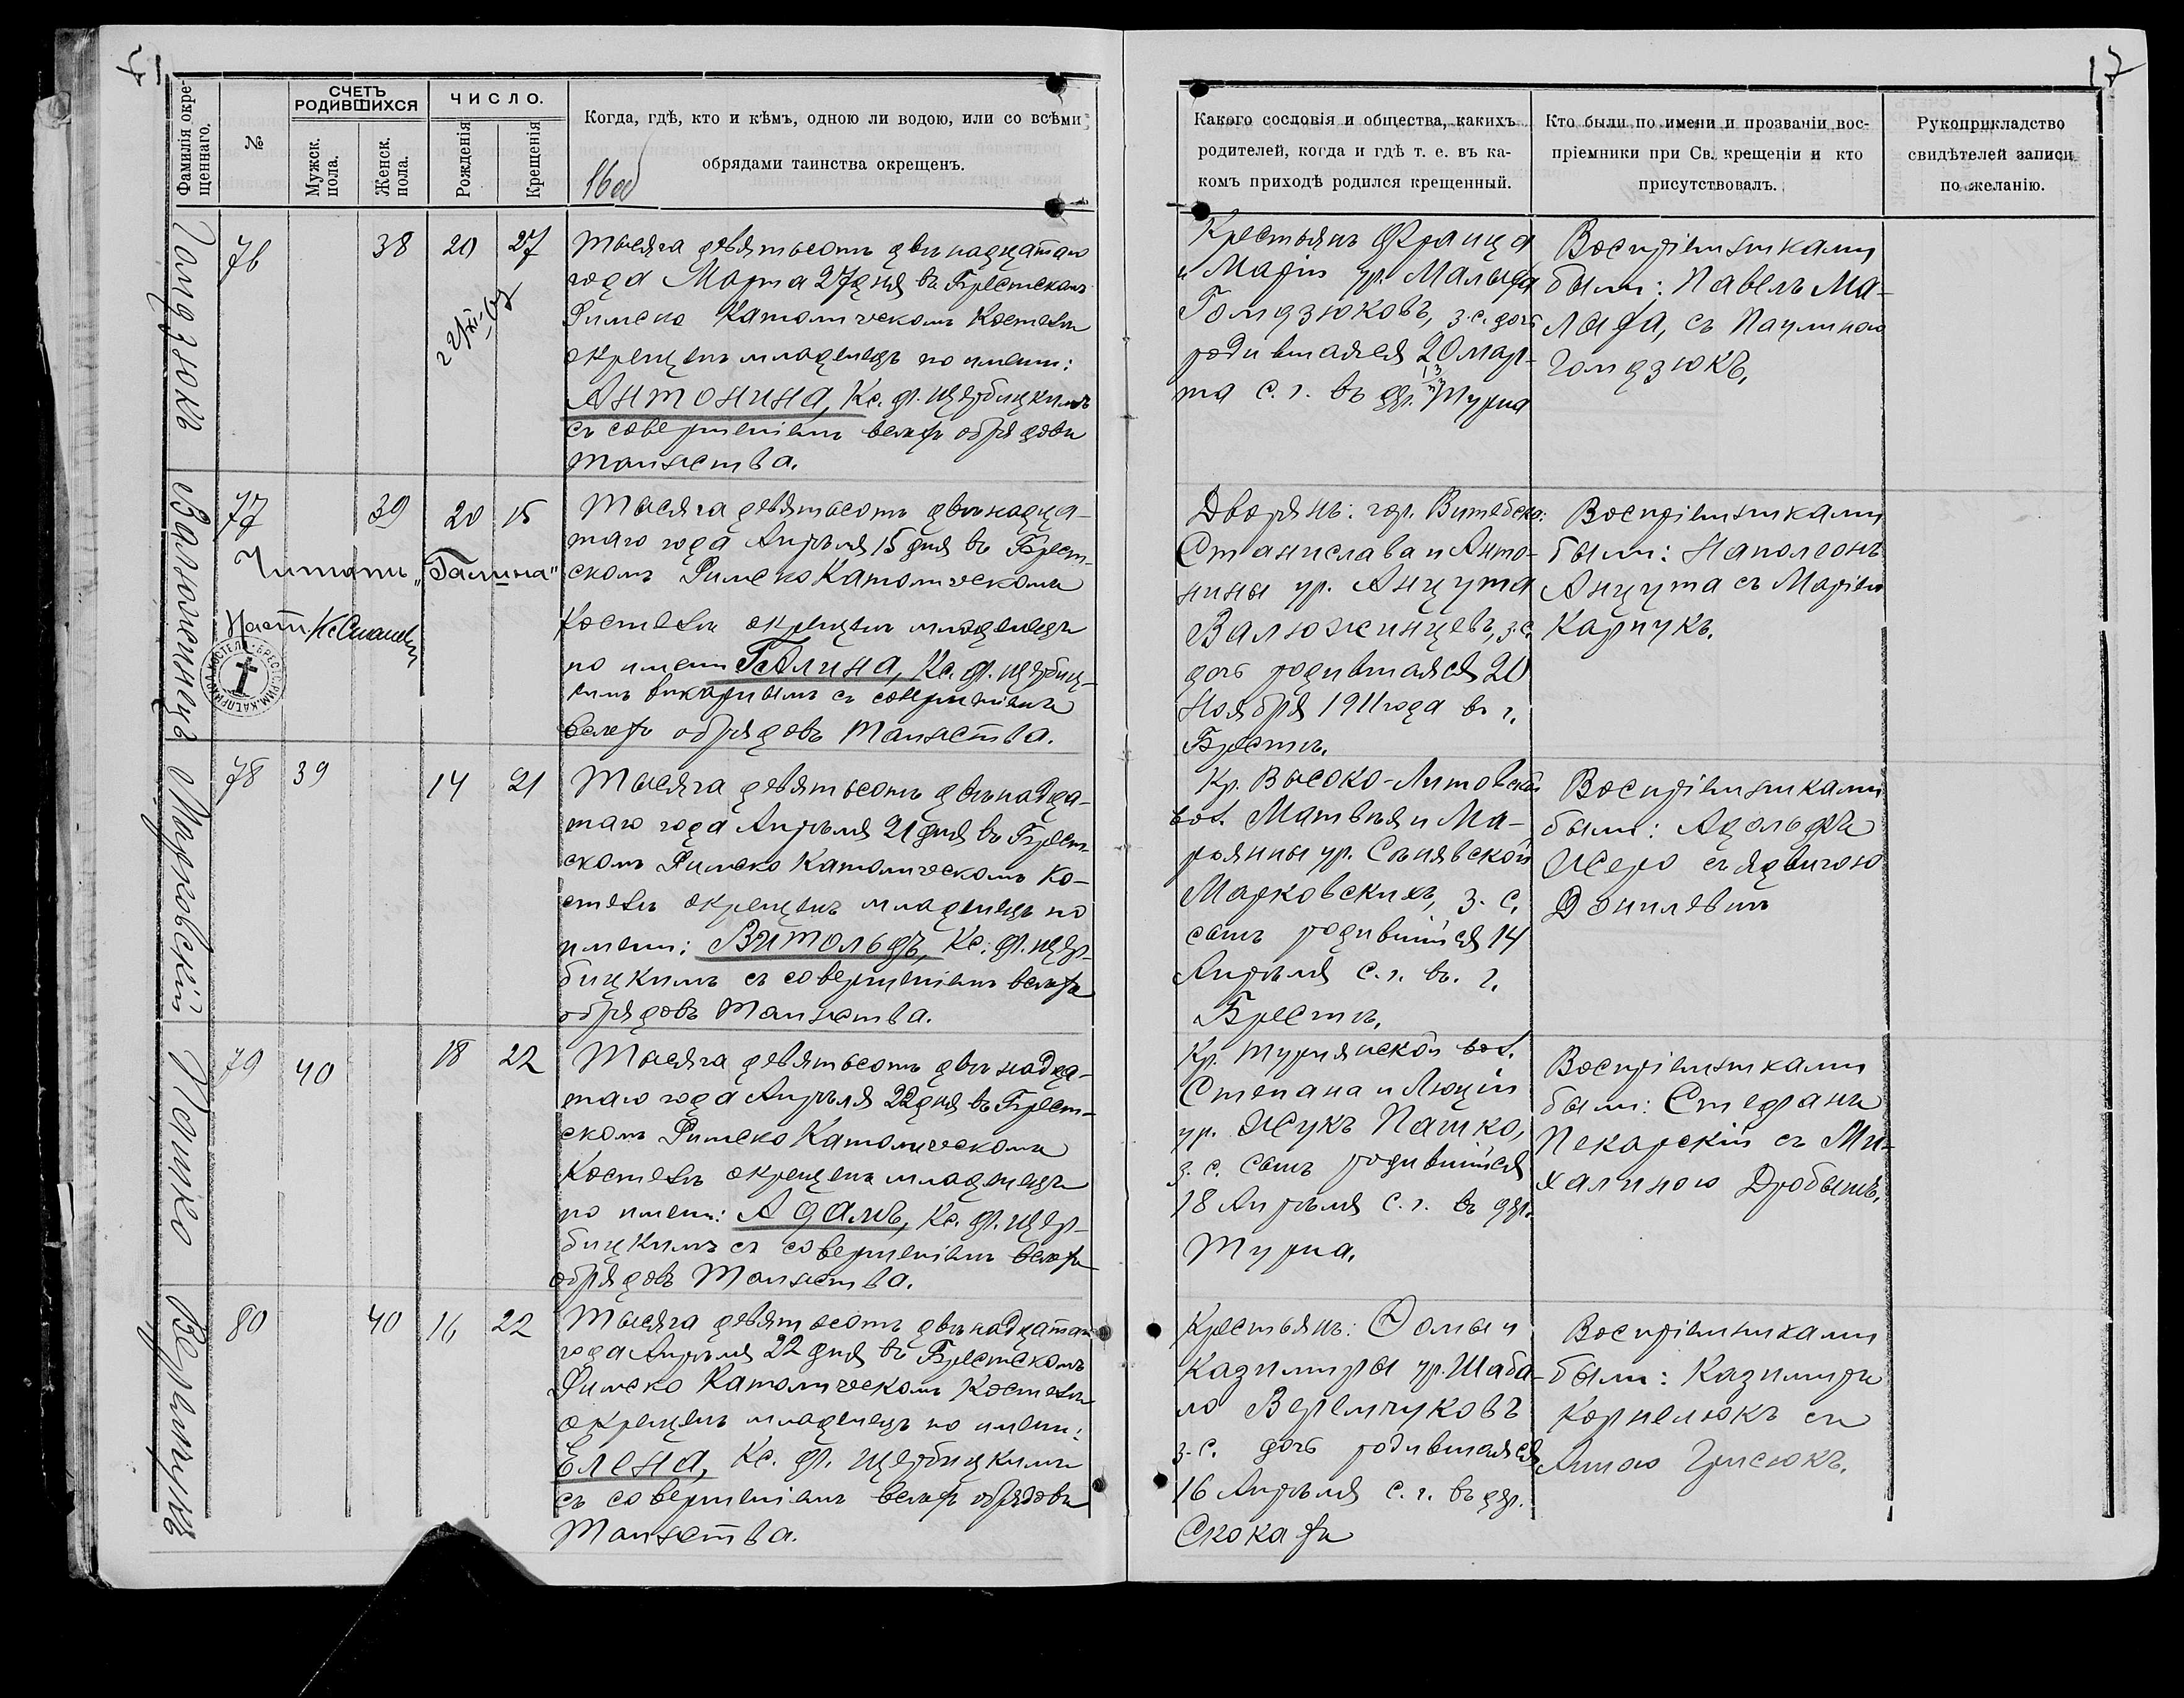 17
Фамилія окре-
щеннаго.
№
СЧЕТЪ
РОДИВШИХСЯ
Мужск.
пола.
Женск.
пола.
ЧИСЛО.
Рожденія
Крещенія
Когда, гдѣ, кто и кѣмъ, одною ли водою, или со всѣми
обрядами таинства окрещенъ.
Какого сословія и общества, какихъ
родителей, когда и гдѣ т. е. въ ка-
комъ приходѣ родился крещенный.
Кто были по имени и прозваніи вос-
пріемники при Св. крещеніи и кто
присутствовалъ.
Рукоприкладство
свидѣтелей записи
по желанію.
Гомдзюкъ
76 38 20 27
Тысяча девятьсотъ двѣнадцатаго
года Марта 27 дня въ Брестскомъ
Римско Католическомъ Костелѣ
окрещенъ младенецъ по имени:
Антонина, Кс. Ф. Щербицкимъ
съ совершеніемъ всѣхъ обрядовъ
Таинства.
Крестьянъ Франца
и Маріи ур. Малыха
Гомдзюковъ, з.с. дочь
родившаяся 20 мар-
та с. г. въ дер. Турна
Воспріемниками
были: Павелъ Ма-
лыха, съ Паулиною
Гомдзюкъ.
Валюжинецъ
77 39 20 15
Читать „Галина"
Тысяча девятьсотъ двѣнадца-
таго года Апрѣля 15 дня въ Брест-
скомъ Римско Католическомъ
Костелѣ окрещенъ младенецъ
по имени Галина, Кс. Ф. Щербиц-
кимъ викаріемъ съ совершеніемъ
всѣхъ обрядовъ Таинства.
Дворянъ: гор. Витебска:
Станислава и Анто-
нины ур. Анцута
Валюжинцевъ, з.с.
дочь родившаяся 20
Ноября 1911 года въ г.
Брестѣ.
Воспріемниками
были: Наполеонъ
Анцута съ Маріею
Карпукъ.
Марковскій
78 39 14 21
Тысяча девятьсотъ двѣнадца-
таго года Апрѣля 21 дня въ Брест-
скомъ Римско Католическомъ Ко-
стелѣ окрещенъ младенецъ по
имени: Витольдъ, Кс. Ф. Щер-
бицкимъ съ совершеніемъ всѣхъ
обрядовъ Таинства.
Кр. Высоко-Литовской
вол. Матвѣя и Ма-
ріянны ур. Сѣнявской
Марковскихъ, з. с.
сынъ родившійся 14
Апрѣля с. г. въ. г.
Брестѣ.
Воспріемниками
были: Адольфъ
съ Ядвигою
Пашко
79 40 18 22
Тысяча девятьсотъ двѣнадца-
таго года Апрѣля 22 дня въ Брест-
скомъ Римско Католическомъ
Костелѣ окрещенъ младенецъ
по имени: Адамъ, Кс. Ф. Щер-
бицкимъ съ совершеніемъ всѣхъ
обрядовъ Таинства.
Кр. Турнянской вол.
Степана и Люціи
ур. Жукъ Пашко,
з. с. сынъ родившійся
18 Апрѣля с. г. въ дер.
Турна.
Воспріемниками
были: Стефанъ
Пекарскій съ Ми-
халиною Дробышъ.
Веремчукъ
80 40 16 22
Тысяча девятьсотъ двѣнадцатаго
года Апрѣля 22 дня въ Брестскомъ
Римско Католическомъ Костелѣ
окрещенъ младенецъ по имени:
Елена, Кс. Ф. Щербицкимъ
съ совершеніемъ всѣхъ обрядовъ
Таинства.
Крестьянъ: Ѳомы и
Казимиры ур. Шаба-
ло Веремчуковъ
з. с. дочь родившаяся
16 Апрѣля с. г. въ дер.
Скокахъ
Воспріемниками
были: Казимиръ
Корнелюкъ съ
Анною Грисюкъ.